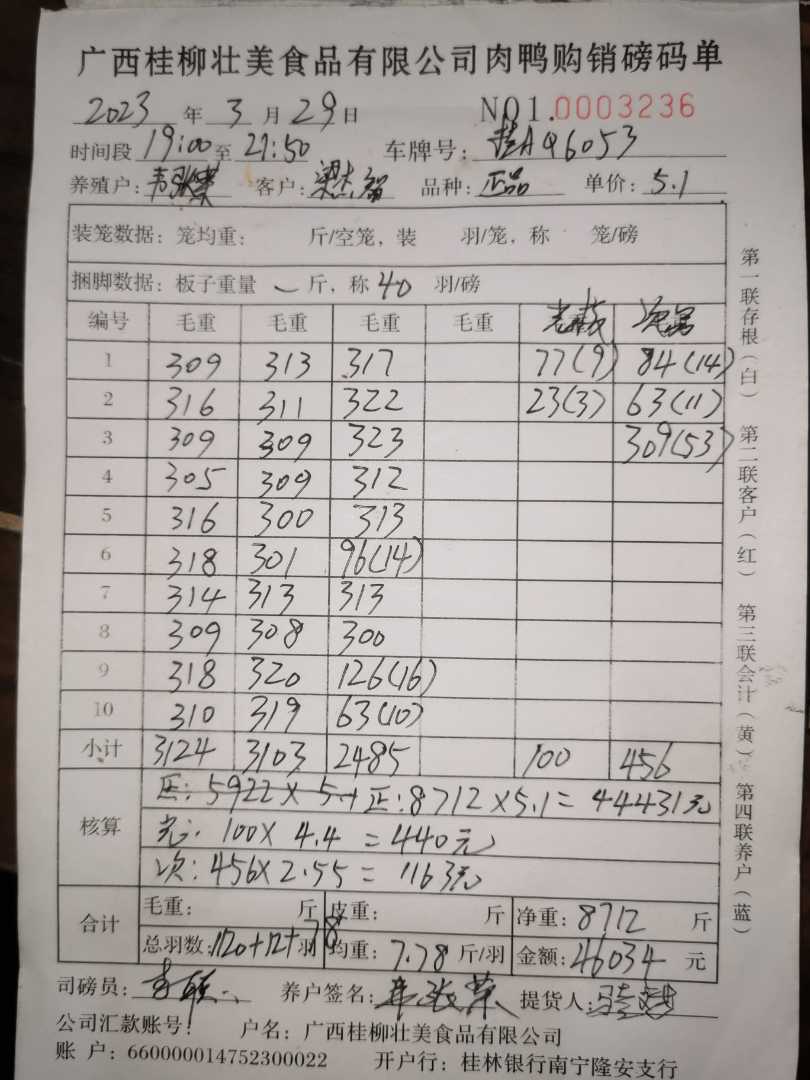 广西桂柳壮美食品有限公司肉鸭购销磅码单
2023 年 3 月 29 日 NO1.0003236
时间段 19:00 至 21:50 车牌号: 桂AQ6053
养殖户: 客户: 品种: 正品 单价: 5.1
装笼数据: 笼均重: 斤/空笼, 装 羽/笼, 称 笼/磅
捆脚数据: 板子重量 斤, 称 40 羽/磅
编号 毛重 毛重 毛重 毛重
1 309 313 317 77(9) 84(14)
2 316 311 322 23(3) 63(11)
3 309 309 323 309(53)
4 305 309 312
5 316 300 313
6 318 301 96(14)
7 314 313 313
8 309 308 300
9 318 320 126(16)
10 310 319 63(10)
小计 3124 3103 2485 100 456
核算 正: 5922×5.1 正:8712×5.1=44431元
光: 100×4.4=440元
次:456×2.55=1163元
合计 毛重: 斤 皮重: 斤 净重: 8712 斤
总羽数: 1120+12+78 羽 均重: 7.78 斤/羽 金额: 46034 元
司磅员: 养户签名: 提货人:
公司汇款账号: 户名: 广西桂柳壮美食品有限公司
账 户: 660000014752300022 开户行: 桂林银行南宁隆安支行
第一联存根(白) 第二联客户(红) 第三联会计(黄) 第四联养户(蓝)